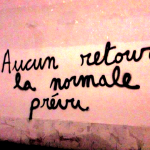 Aucun retour
la normale
prévu